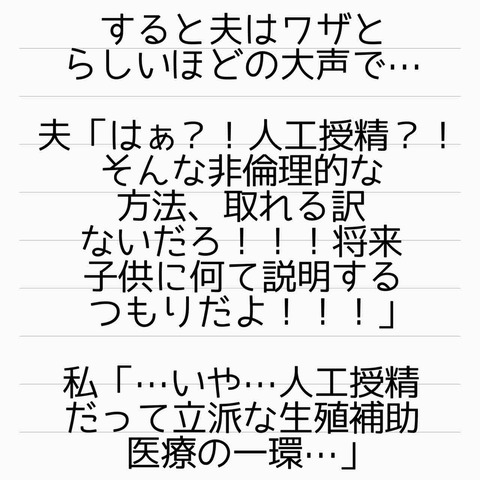 すると夫はワザと
らしいほどの大声で…
夫「はぁ？！人工授精？！
そんな非倫理的な
方法、取れる訳
ないだろ！！！将来
子供に何て説明する
つもりだよ！！！」
私「…いや…人工授精
だって立派な生殖補助
医療の一環…」